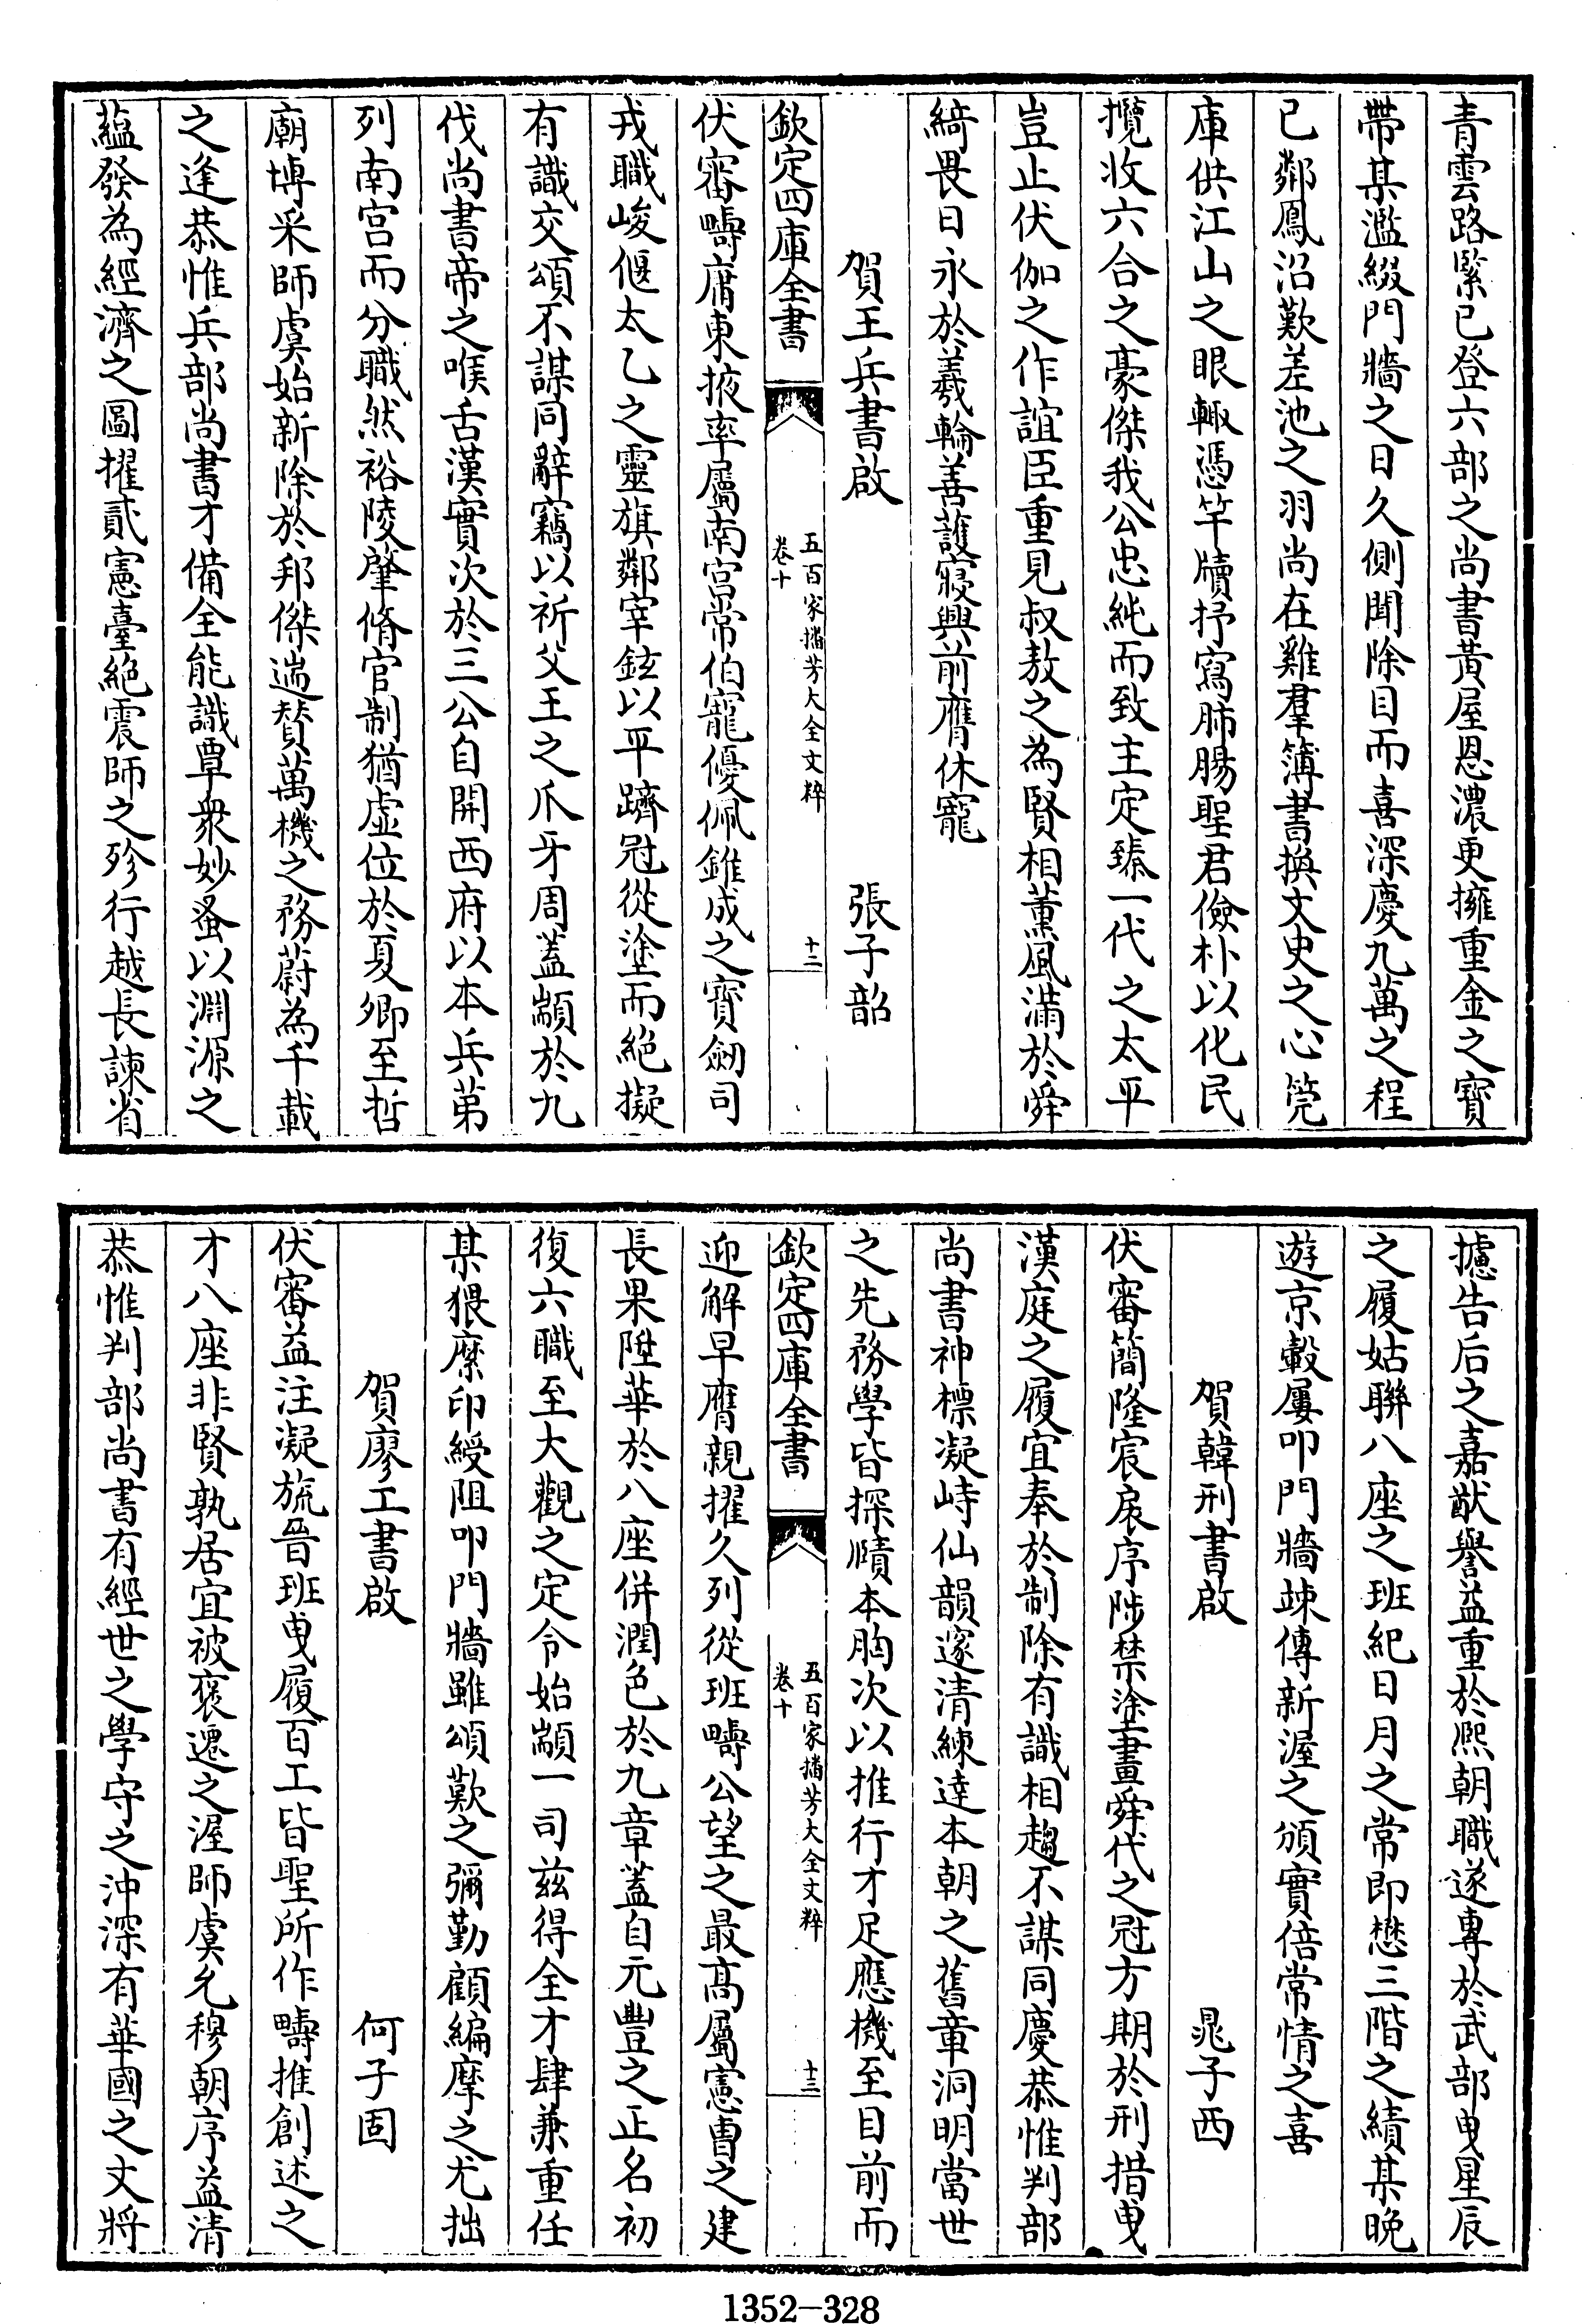 青雲路緊已登六部之尚書黃屋恩濃更擁重金之寳
帶某濫綴門牆之日久側聞除目而喜深慶九萬之程
已鄰鳳沼歎差池之羽尚在雞羣簿書換文史之心筦
庫供江山之眼輙憑竿牘抒寫肺腸聖君儉朴以化民
攬收六合之豪傑我公忠純而致主定臻一代之太平
豈止伏伽之作誼臣重見叔敖之為賢相薰風滿於舜
綺畏日永於羲輪善護寢興前膺休寵
賀王兵書啟 張子韶
欽定四庫全書 五百家播芳大全文粹 卷十 十二
伏審疇庸東掖率屬南宮常伯寵優佩錐成之寳劒司
戎職峻偃太乙之靈旗鄰宰鉉以平躋冠從塗而絶擬
有識交頌不謀同辭竊以祈父王之爪牙周蓋顓於九
伐尚書帝之喉舌漢實次於三公自開西府以本兵第
列南宮而分職然裕陵肇脩官制猶虛位於夏卿至哲
廟博采師虞始新除於邦傑遄賛萬機之務蔚為千載
之逢恭惟兵部尚書才備全能識覃衆妙蚤以淵源之
蘊發為經濟之圖擢貳憲臺絶震師之殄行越長諫省
攄告后之嘉猷譽益重於熙朝職遂專於武部曵星辰
之履姑聯八座之班紀日月之常即懋三階之績某晚
遊京轂屢叩門牆竦傳新渥之頒實倍常情之喜
賀韓刑書啟 晁子西
伏審簡隆宸扆序陟禁塗畫舜代之冠方期於刑措曵
漢庭之履宜奉於制除有識相趨不謀同慶恭惟判部
尚書神標凝峙仙韻邃清練達本朝之舊章洞明當世
之先務學皆探賾本胸次以推行才足應機至目前而
欽定四庫全書 五百家播芳大全文粹 卷十 十三
迎解早膺親擢久列從班疇公望之最高屬憲曹之建
長果陞華於八座併潤色於九章蓋自元豐之正名初
復六職至大觀之定令始顓一司兹得全才肆兼重任
某猥縻印綬阻叩門牆雖頌歎之彌勤顧編摩之尤拙
賀廖工書啟 何子固
伏審益注凝旒晉班曵履百工皆聖所作疇推創述之
才八座非賢孰居宜被褒遷之渥師虞允穆朝序益清
恭惟判部尚書有經世之學守之沖深有華國之文將
1352-328